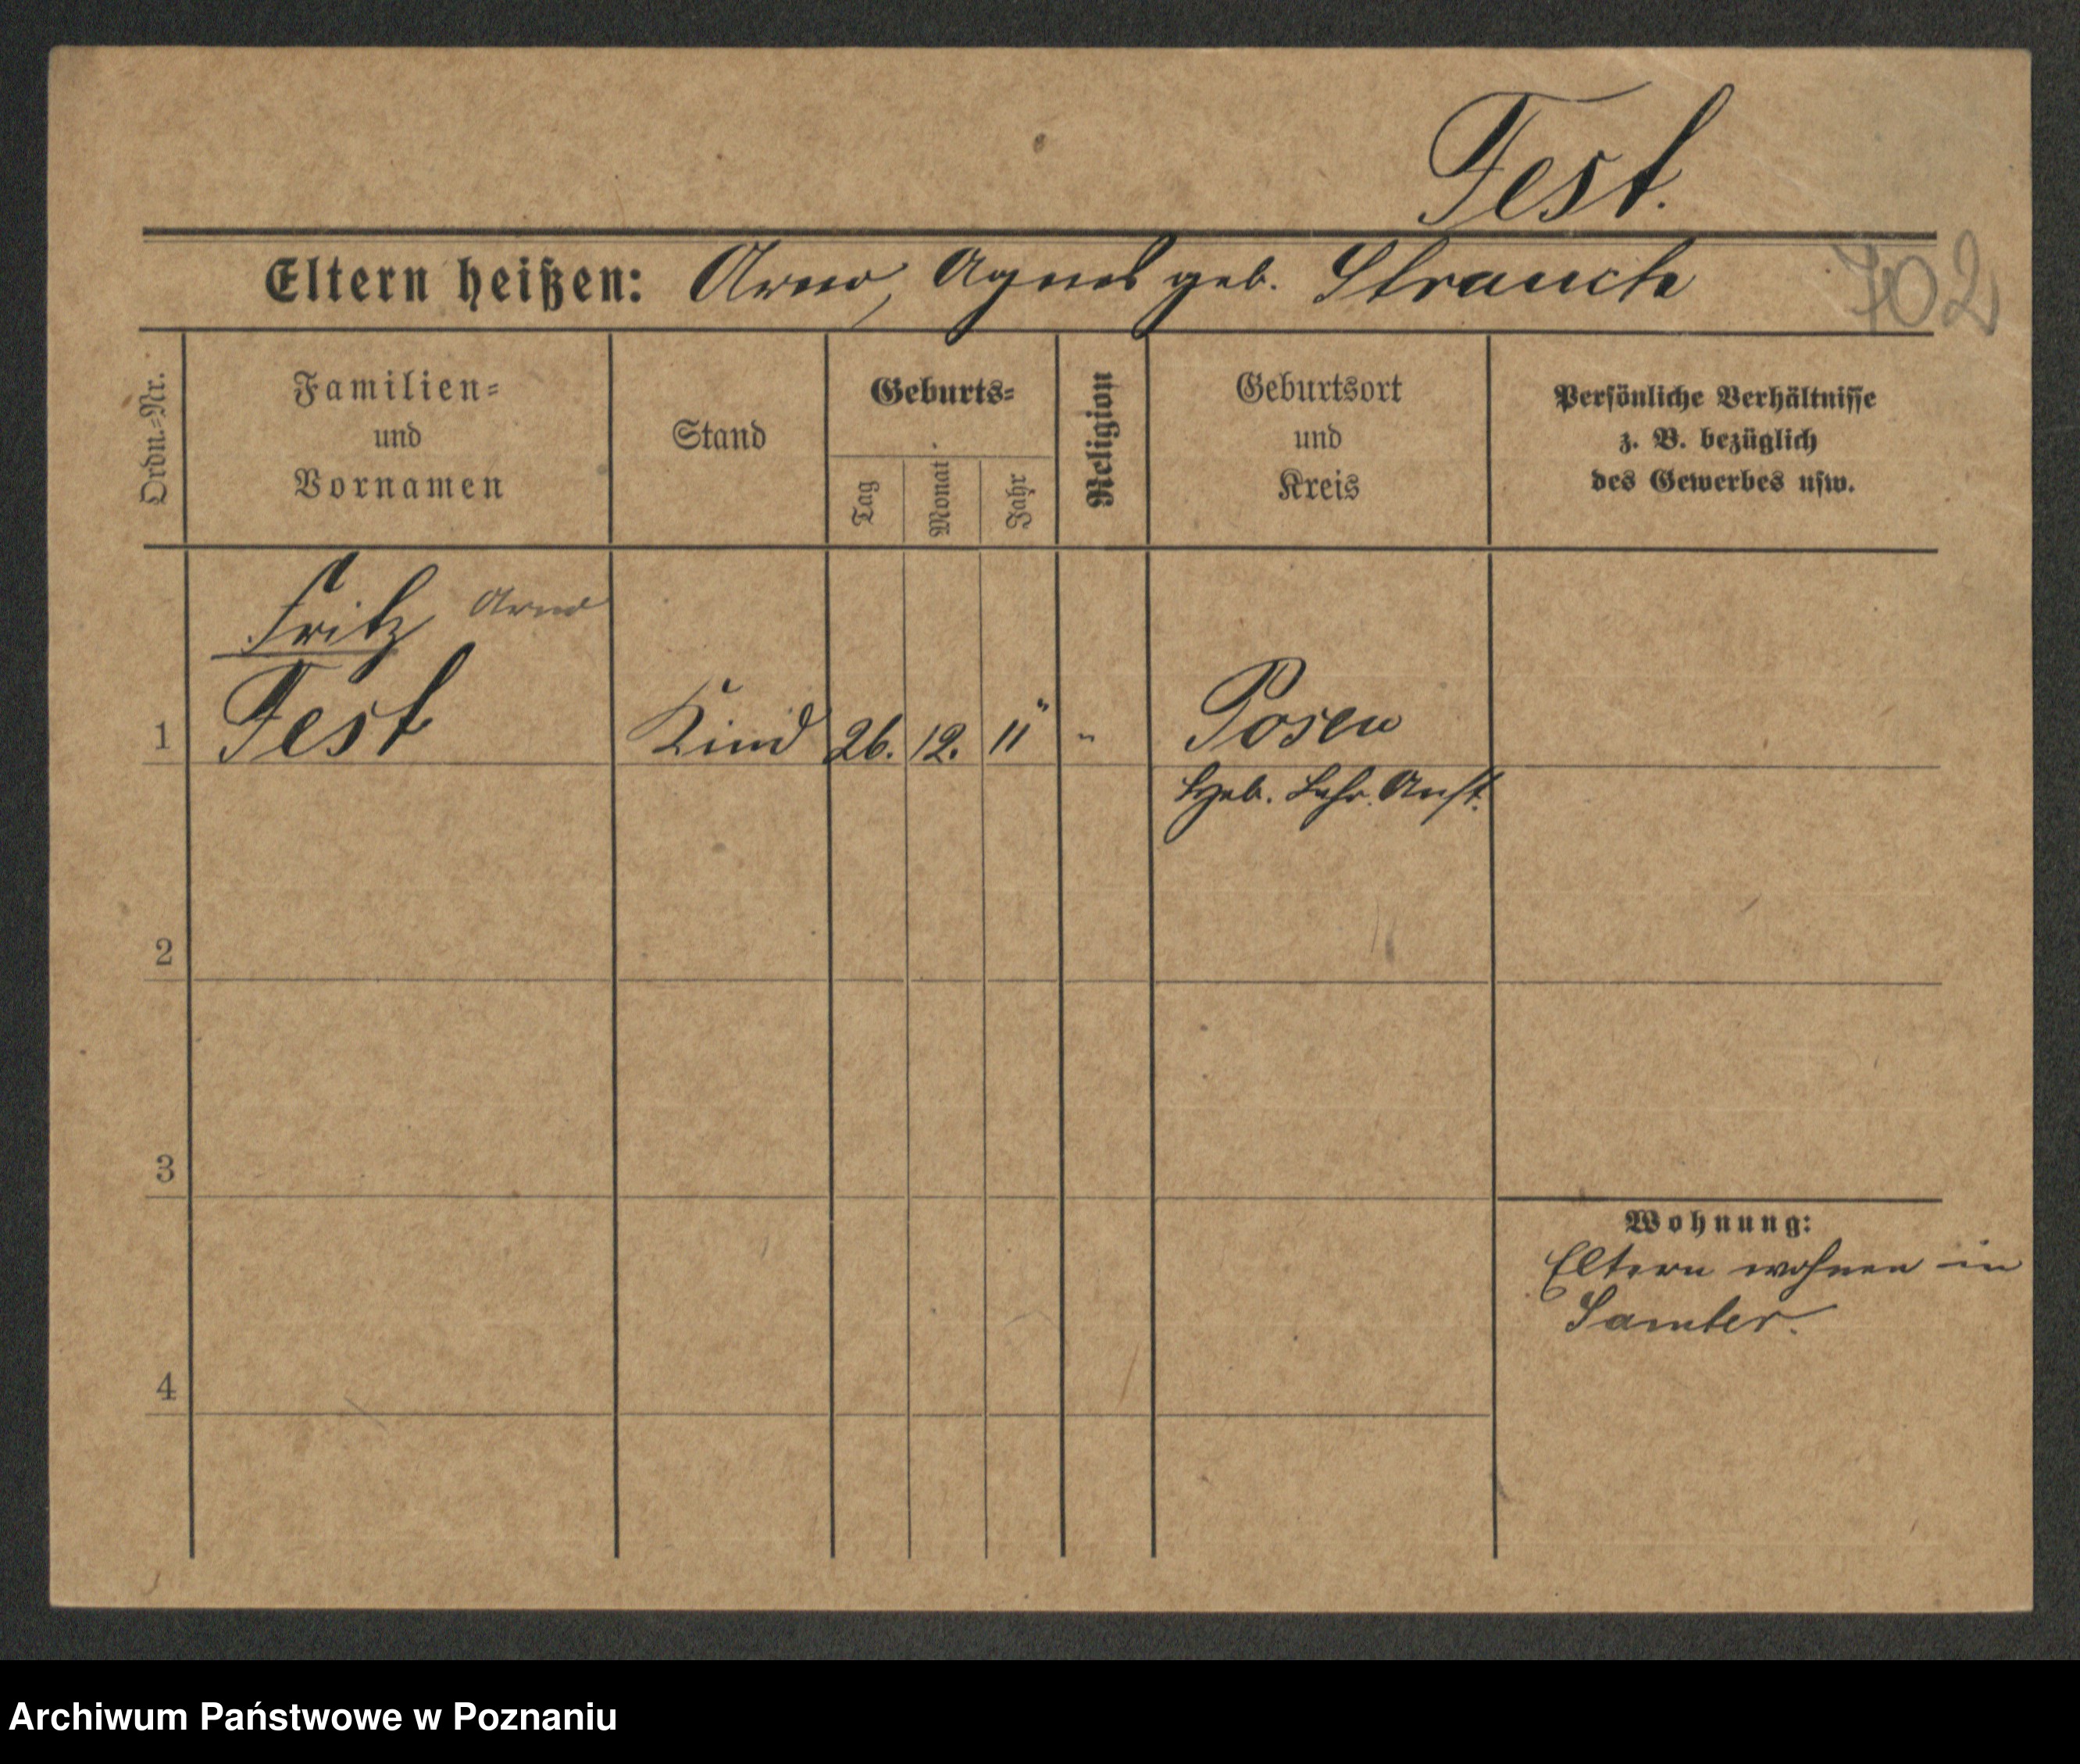 Fest.
Eltern heißen: Arno, Agnes geb. Strauch
702
Ordn.-Nr.
Familien-
und
Vornamen
Stand
Geburts-
Tag
Monat
Jahr
Religion
Geburtsort
und
Kreis
Persönliche Verhältnisse
z. B. bezüglich
des Gewerbes usw.
Fritz Arno
1 Fest Kind 26. 12. 11 " Posen
Heb. Lehr. Anst.
2
3
Wohnung:
Eltern wohnen in
Samter.
4
Archiwum Państwowe w Poznaniu